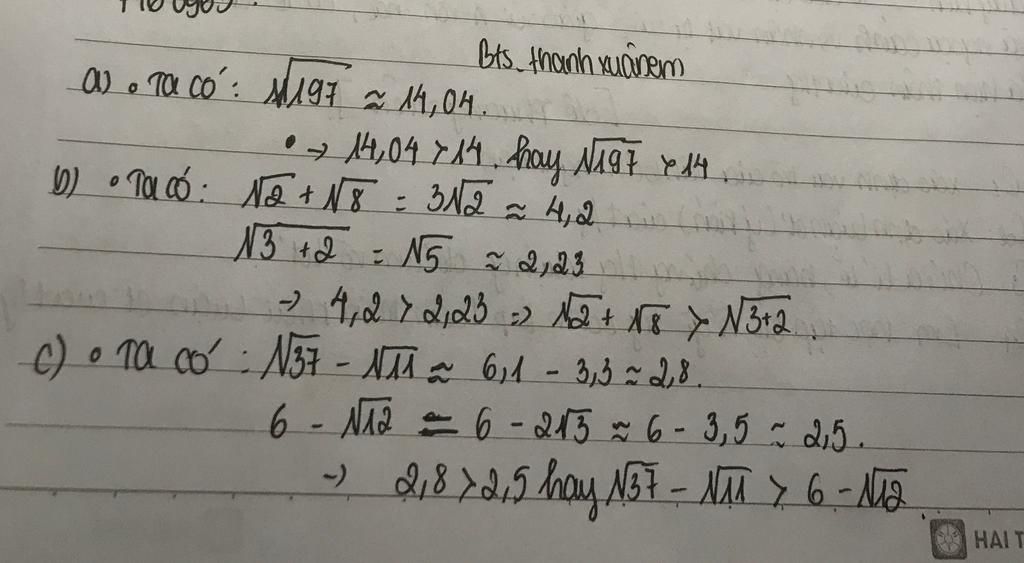 Bts_thanhxuânem
a) • Ta có: √197 ≈ 14,04.
• → 14,04 > 14. hay √197 > 14.
b) • Ta có: √2 + √8 = 3√2 ≈ 4,2
√(3 + 2) = √5 ≈ 2,23
→ 4,2 > 2,23 => √2 + √8 > √(3+2).
c) • Ta có: √37 - √11 ≈ 6,1 - 3,3 ≈ 2,8.
6 - √12 = 6 - 2√3 ≈ 6 - 3,5 ≈ 2,5.
→ 2,8 > 2,5 hay √37 - √11 > 6 - √12.
HAI T